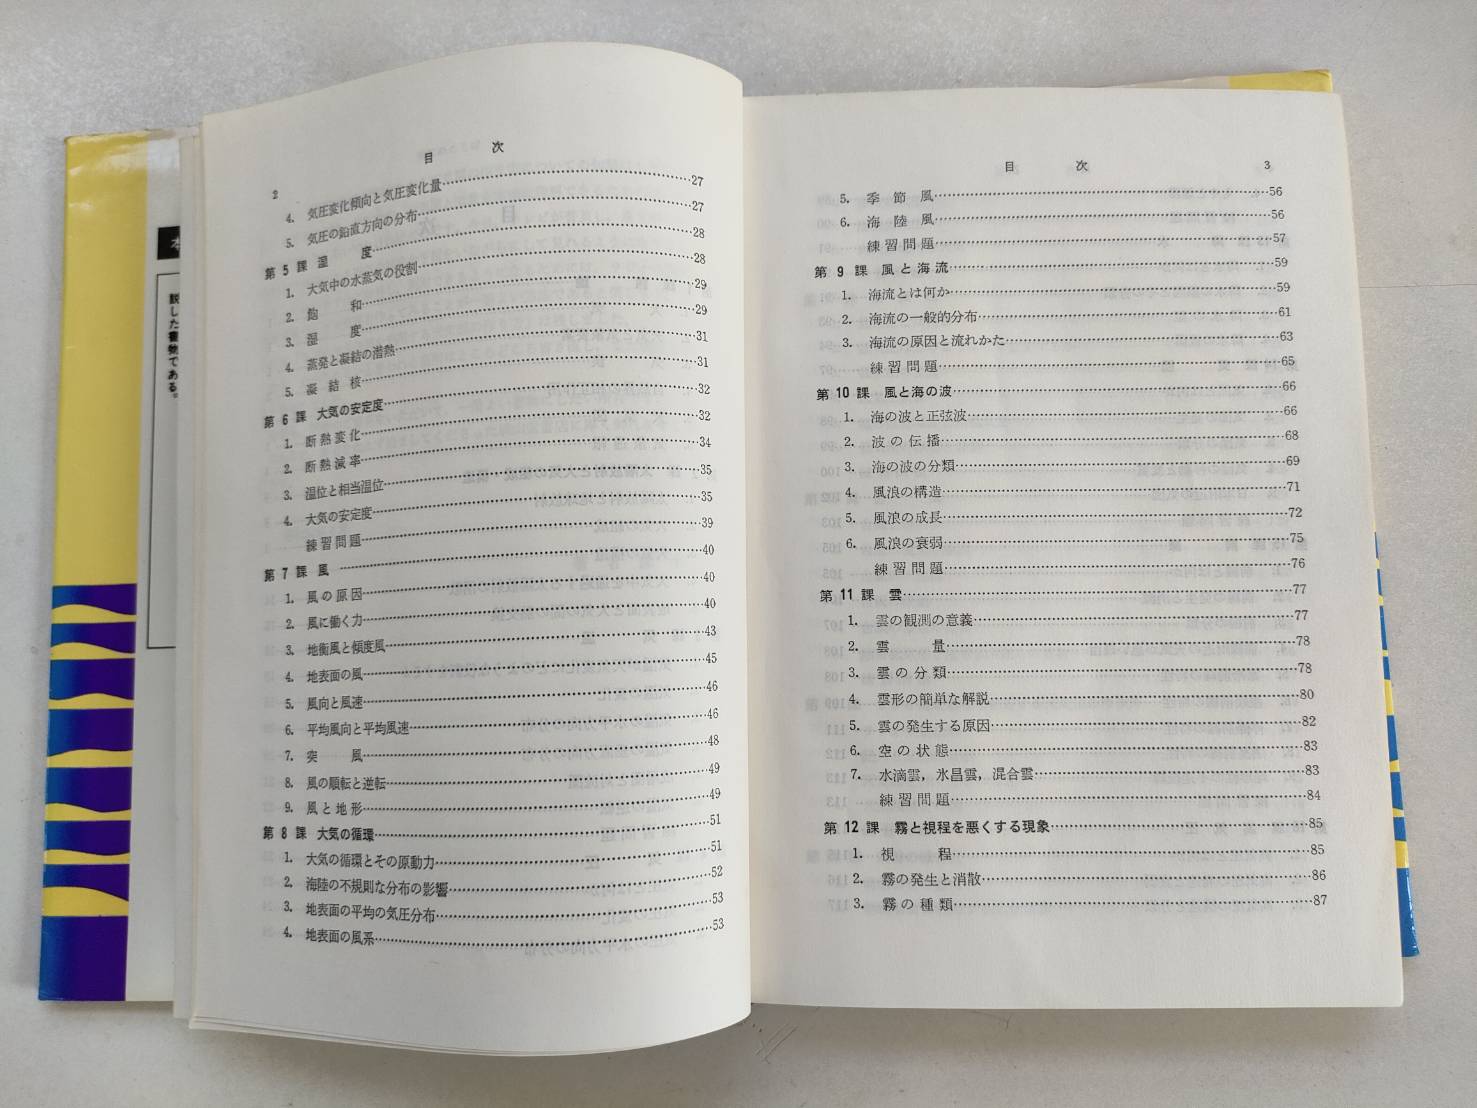 本
説した書物である。
目 次
2
4. 気圧変化傾向と気圧変化量……27
5. 気圧の鉛直方向の分布……27
第5課 湿 度……28
1. 大気中の水蒸気の役割……28
2. 飽 和……29
3. 湿 度……29
4. 蒸発と凝結の潜熱……31
5. 凝 結 核……31
第6課 大気の安定度……32
1. 断熱変化……32
2. 断熱減率……34
3. 温位と相当温位……35
4. 大気の安定度……35
練習問題……39
第7課 風……40
1. 風の原因……40
2. 風に働く力……40
3. 地衡風と傾度風……43
4. 地表面の風……45
5. 風向と風速……46
6. 平均風向と平均風速……46
7. 突 風……48
8. 風の順転と逆転……49
9. 風と地形……49
第8課 大気の循環……51
1. 大気の循環とその原動力……51
2. 海陸の不規則な分布の影響……52
3. 地表面の平均の気圧分布……53
4. 地表面の風系……53
目 次 3
5. 季節風……56
6. 海陸風……56
練習問題……57
第9課 風と海流……59
1. 海流とは何か……59
2. 海流の一般的分布……61
3. 海流の原因と流れかた……63
練習問題……65
第10課 風と海の波……66
1. 海の波と正弦波……66
2. 波の伝播……68
3. 海の波の分類……69
4. 風浪の構造……71
5. 風浪の成長……72
6. 風浪の衰弱……75
練習問題……76
第11課 雲……77
1. 雲の観測の意義……77
2. 雲 量……78
3. 雲の分類……78
4. 雲形の簡単な解説……80
5. 雲の発生する原因……82
6. 空の状態……83
7. 水滴雲，氷晶雲，混合雲……83
練習問題……84
第12課 霧と視程を悪くする現象……85
1. 視 程……85
2. 霧の発生と消散……86
3. 霧の種類……87